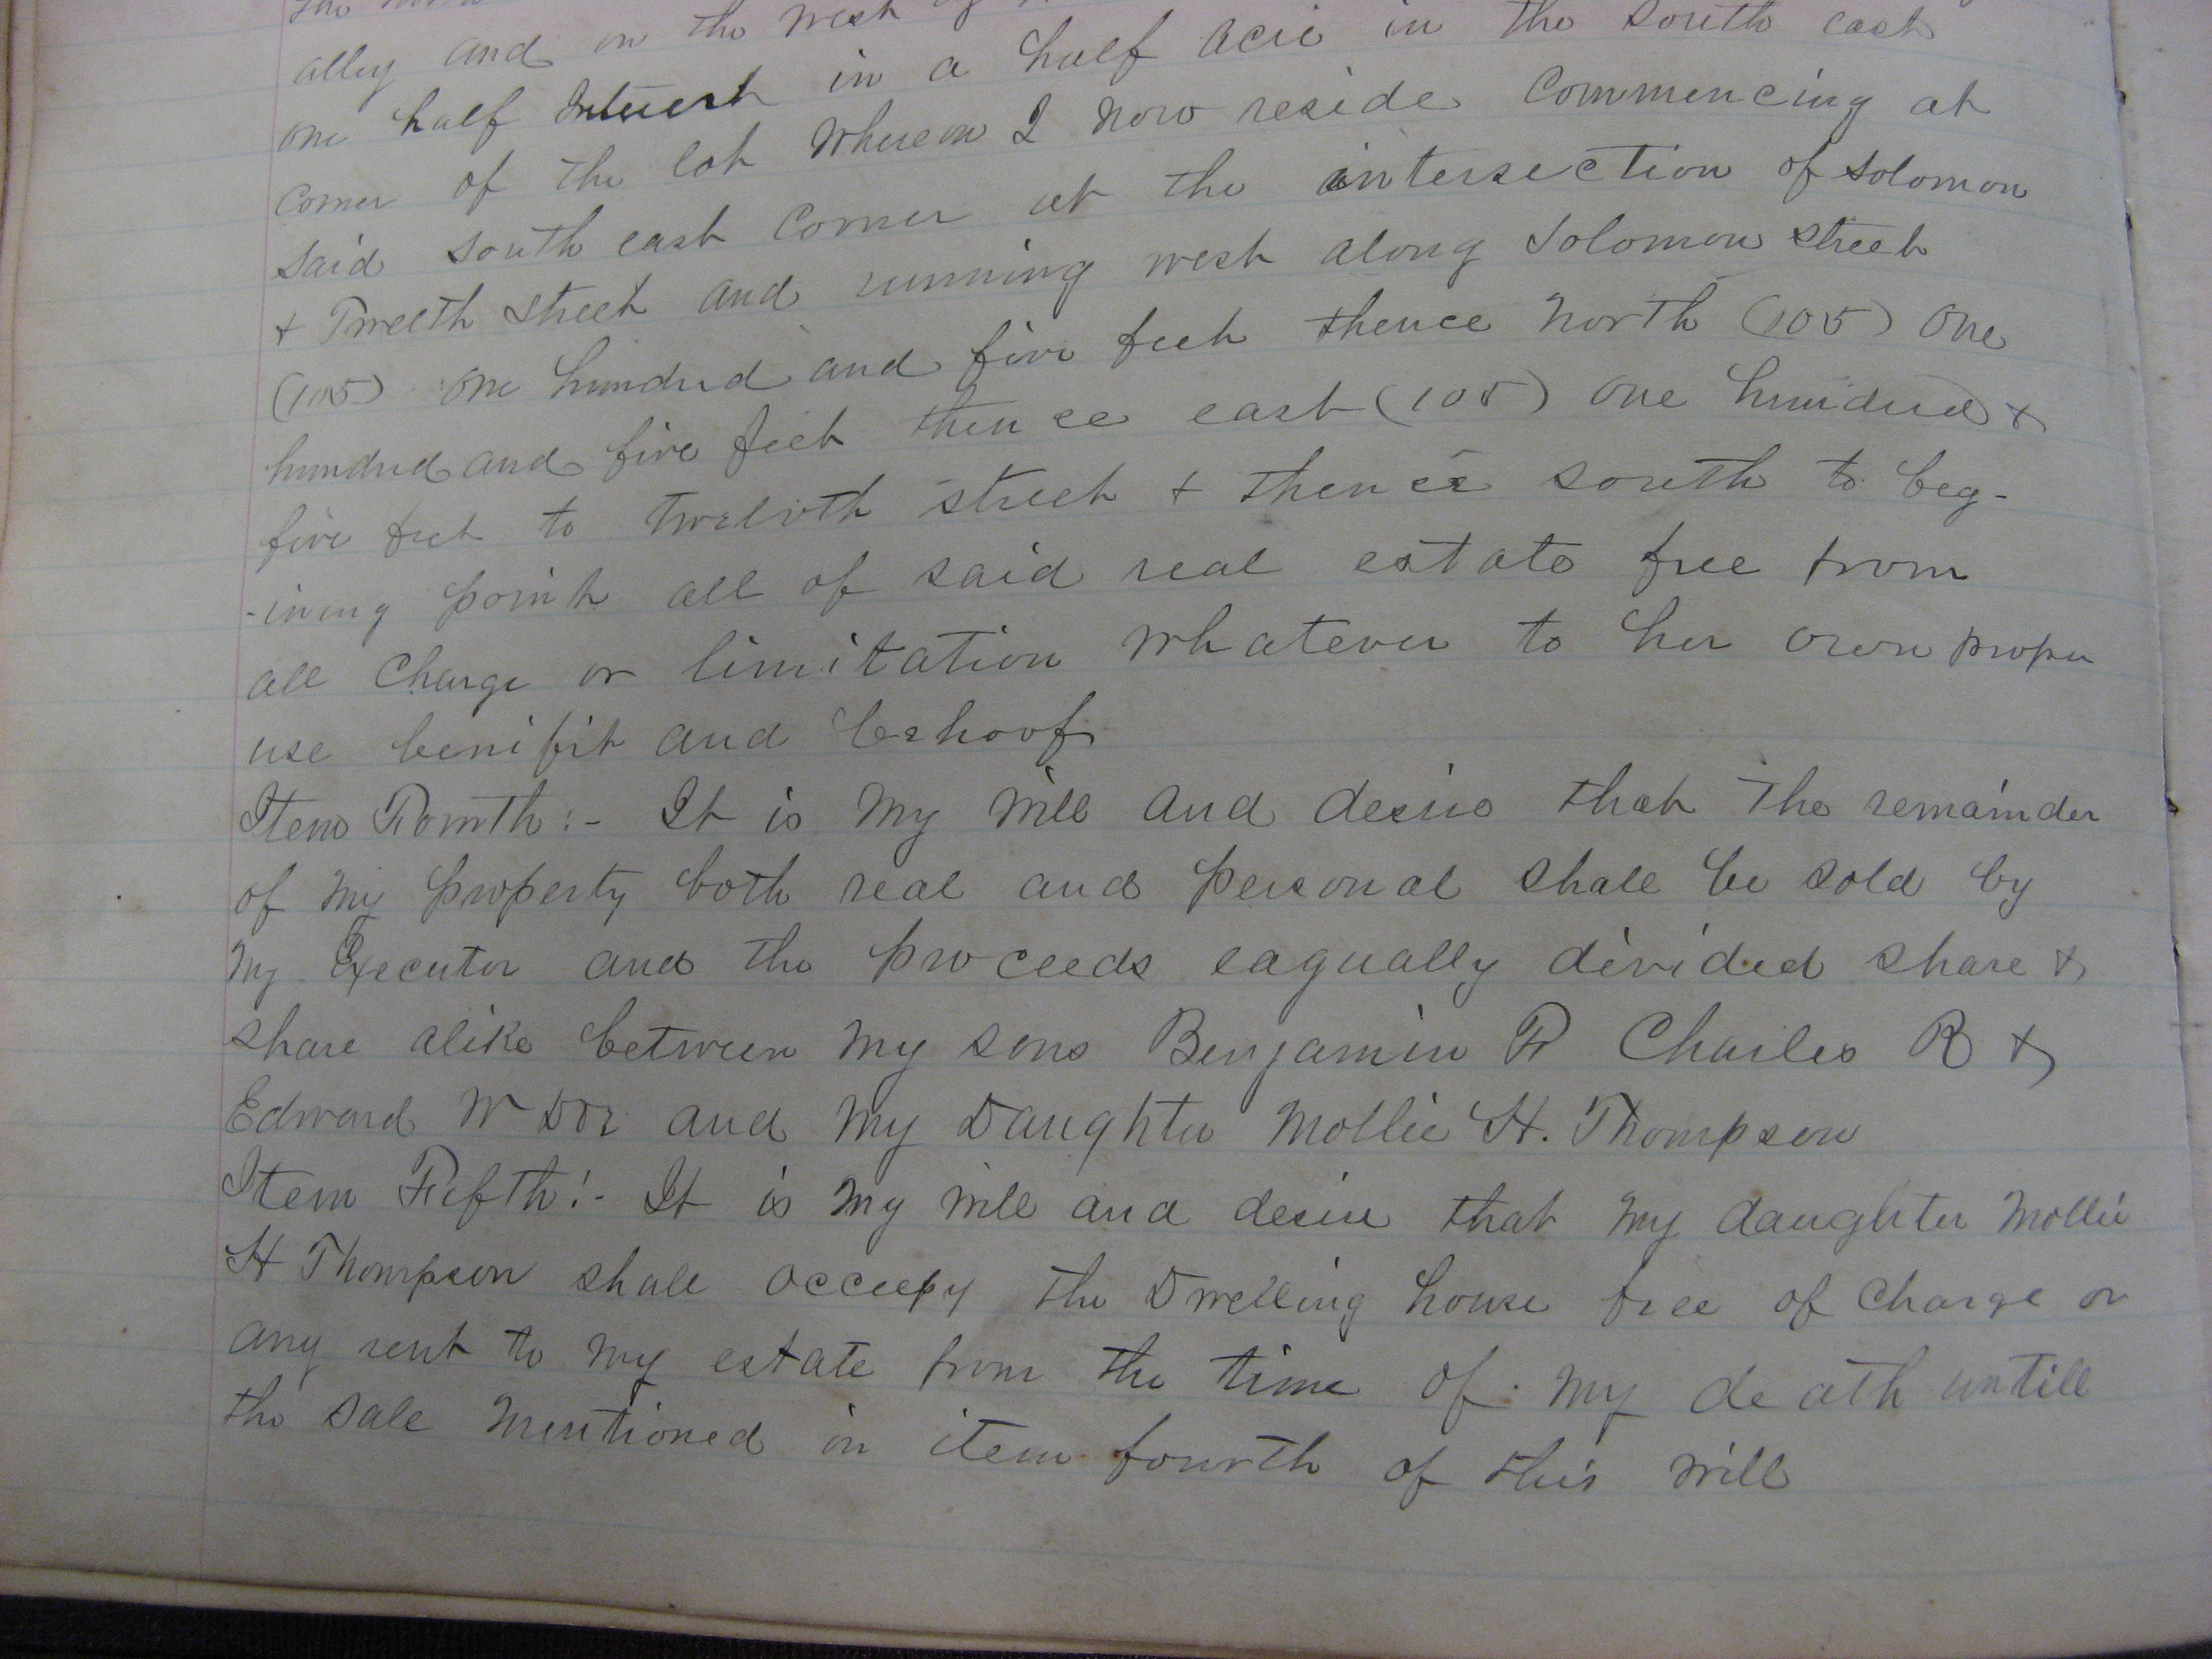 alley and on the West
one half Interest in a half acre in the South east
Corner of the lot Whereon I now reside Commencing at
Said South east Corner at the intersection of Solomon
& Twelth street and running west along Solomon street
(105) One hundred and five feet thence North (105) One
hundred and five feet thence east (105) One hundred &
five feet to Twelvth street & thence south to beg-
-ining point all of said real estate free from
all Charge or limitation Whatever to her own proper
use benifit and behoof
Item Fourth:- It is My Will and desire that the remainder
of My property both real and personal shall be sold by
My Executor and the proceeds eaqually divided share &
share alike between My sons Benjamin F Charles R &
Edward W and My Daughter Mollie H. Thompson
Item Fifth:- It is My Will and desire that My daughter Mollie
H Thompson shall occupy the Dwelling house free of Charge or
any rent to My estate from the time of My death untill
the sale Mentioned in item fourth of this Will